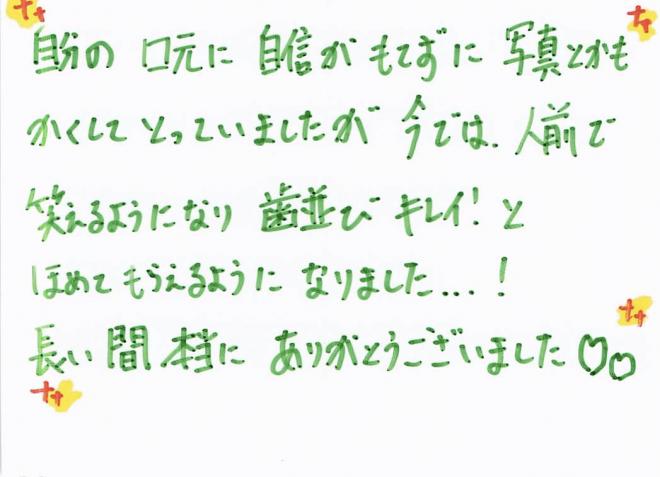 自分の 口元に 自信が もてずに 写真とかも
かくして とっていましたが 今では、人前で
笑えるようになり 歯並び キレイ！と
ほめてもらえるように なりました…！
長い間 本当に ありがとうございました♡♡